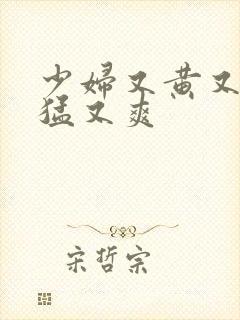 少婦又黄又
猛又爽
宋哲宗